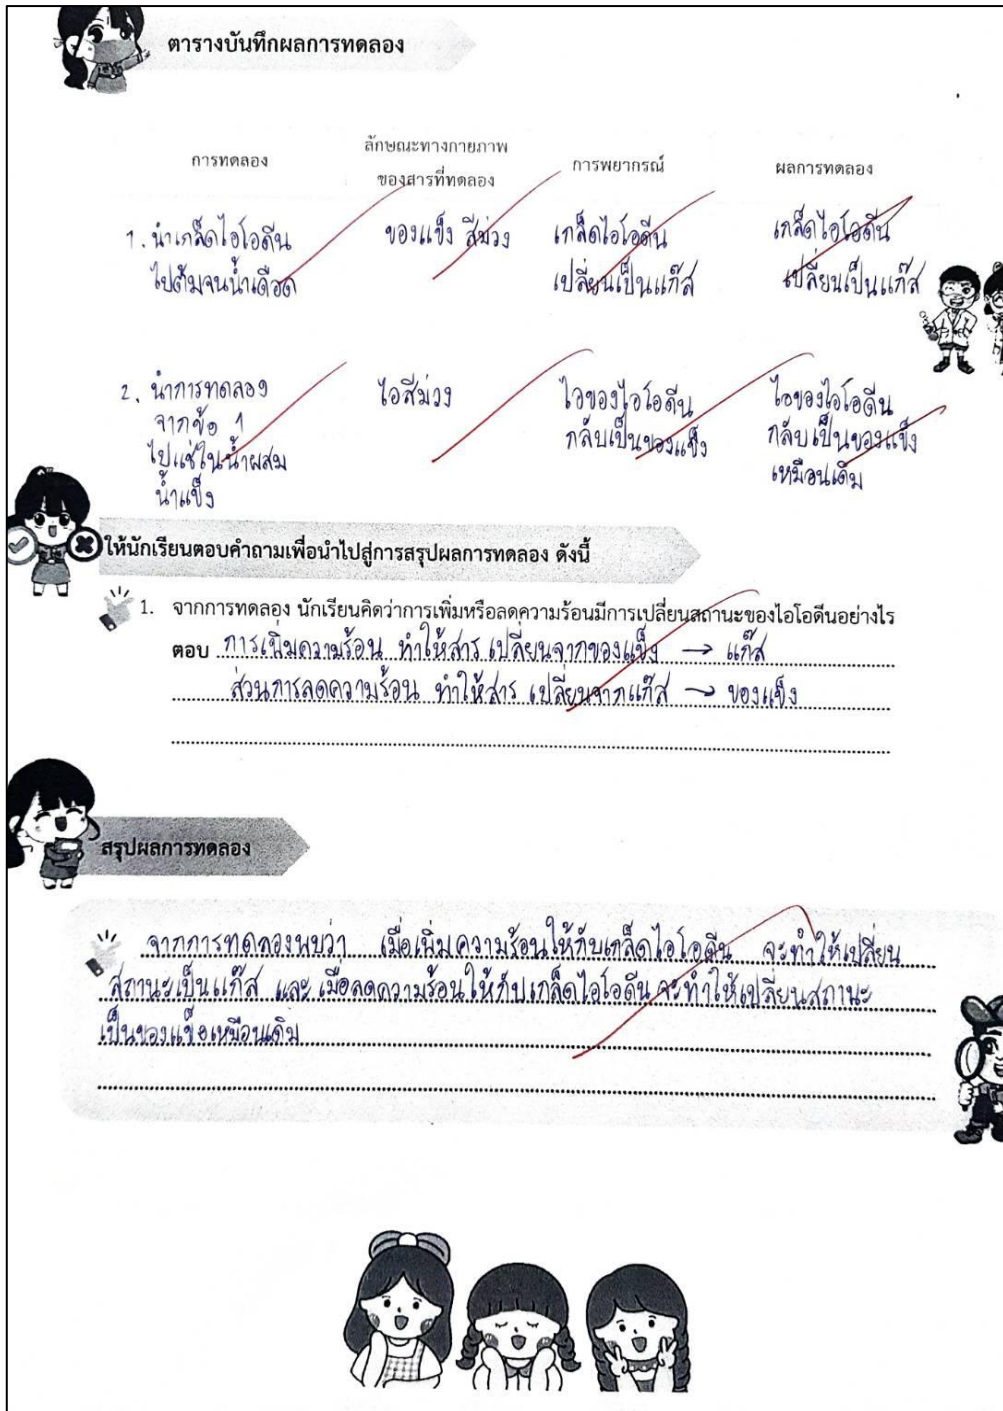 ตารางบันทึกผลการทดลอง
การทดลอง
ลักษณะทางกายภาพ
ของสารที่ทดลอง
การพยากรณ์
ผลการทดลอง
1. นำเกล็ดไอโอดีน
ไปต้มจนน้ำเดือด
ของแข็ง สีม่วง
เกล็ดไอโอดีน
เปลี่ยนเป็นแก๊ส
เกล็ดไอโอดีน
เปลี่ยนเป็นแก๊ส
2. นำการทดลอง
จากข้อ 1
ไปแช่ในน้ำผสม
น้ำแข็ง
ไอสีม่วง
ไอของไอโอดีน
กลับเป็นของแข็ง
ไอของไอโอดีน
กลับเป็นของแข็ง
เหมือนเดิม
ให้นักเรียนตอบคำถามเพื่อนำไปสู่การสรุปผลการทดลอง ดังนี้
1. จากการทดลอง นักเรียนคิดว่าการเพิ่มหรือลดความร้อนมีการเปลี่ยนสถานะของไอโอดีนอย่างไร
ตอบ การเพิ่มความร้อน ทำให้สาร เปลี่ยนจากของแข็ง → แก๊ส
ส่วนการลดความร้อน ทำให้สาร เปลี่ยนจากแก๊ส → ของแข็ง
สรุปผลการทดลอง
จากการทดลองพบว่า เมื่อเพิ่มความร้อนให้กับเกล็ดไอโอดีน จะทำให้เปลี่ยน
สถานะเป็นแก๊ส และ เมื่อลดความร้อนให้กับเกล็ดไอโอดีน จะทำให้เปลี่ยนสถานะ
เป็นของแข็งเหมือนเดิม